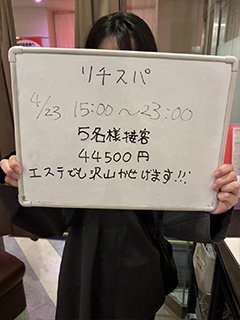 リチスパ
4/23 15:00～23:00
5名様接客
44500円
エステでも沢山かせげます!!